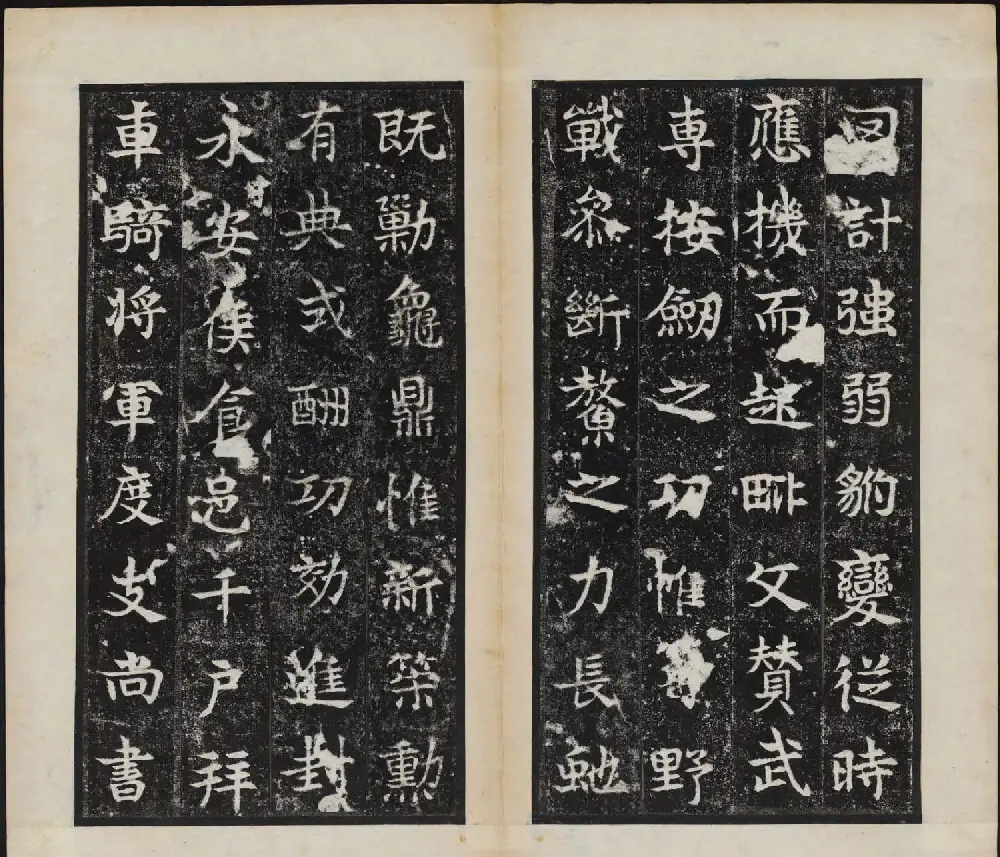 計強弱豹變從時
應機而起毗文贊武
專按劒之功惟尊野
戰叅斷鼇之力長虵
既勦龜鼎惟新策勳
有典式酬功効進封
永安侯食邑千戶拜
車騎將軍度支尚書